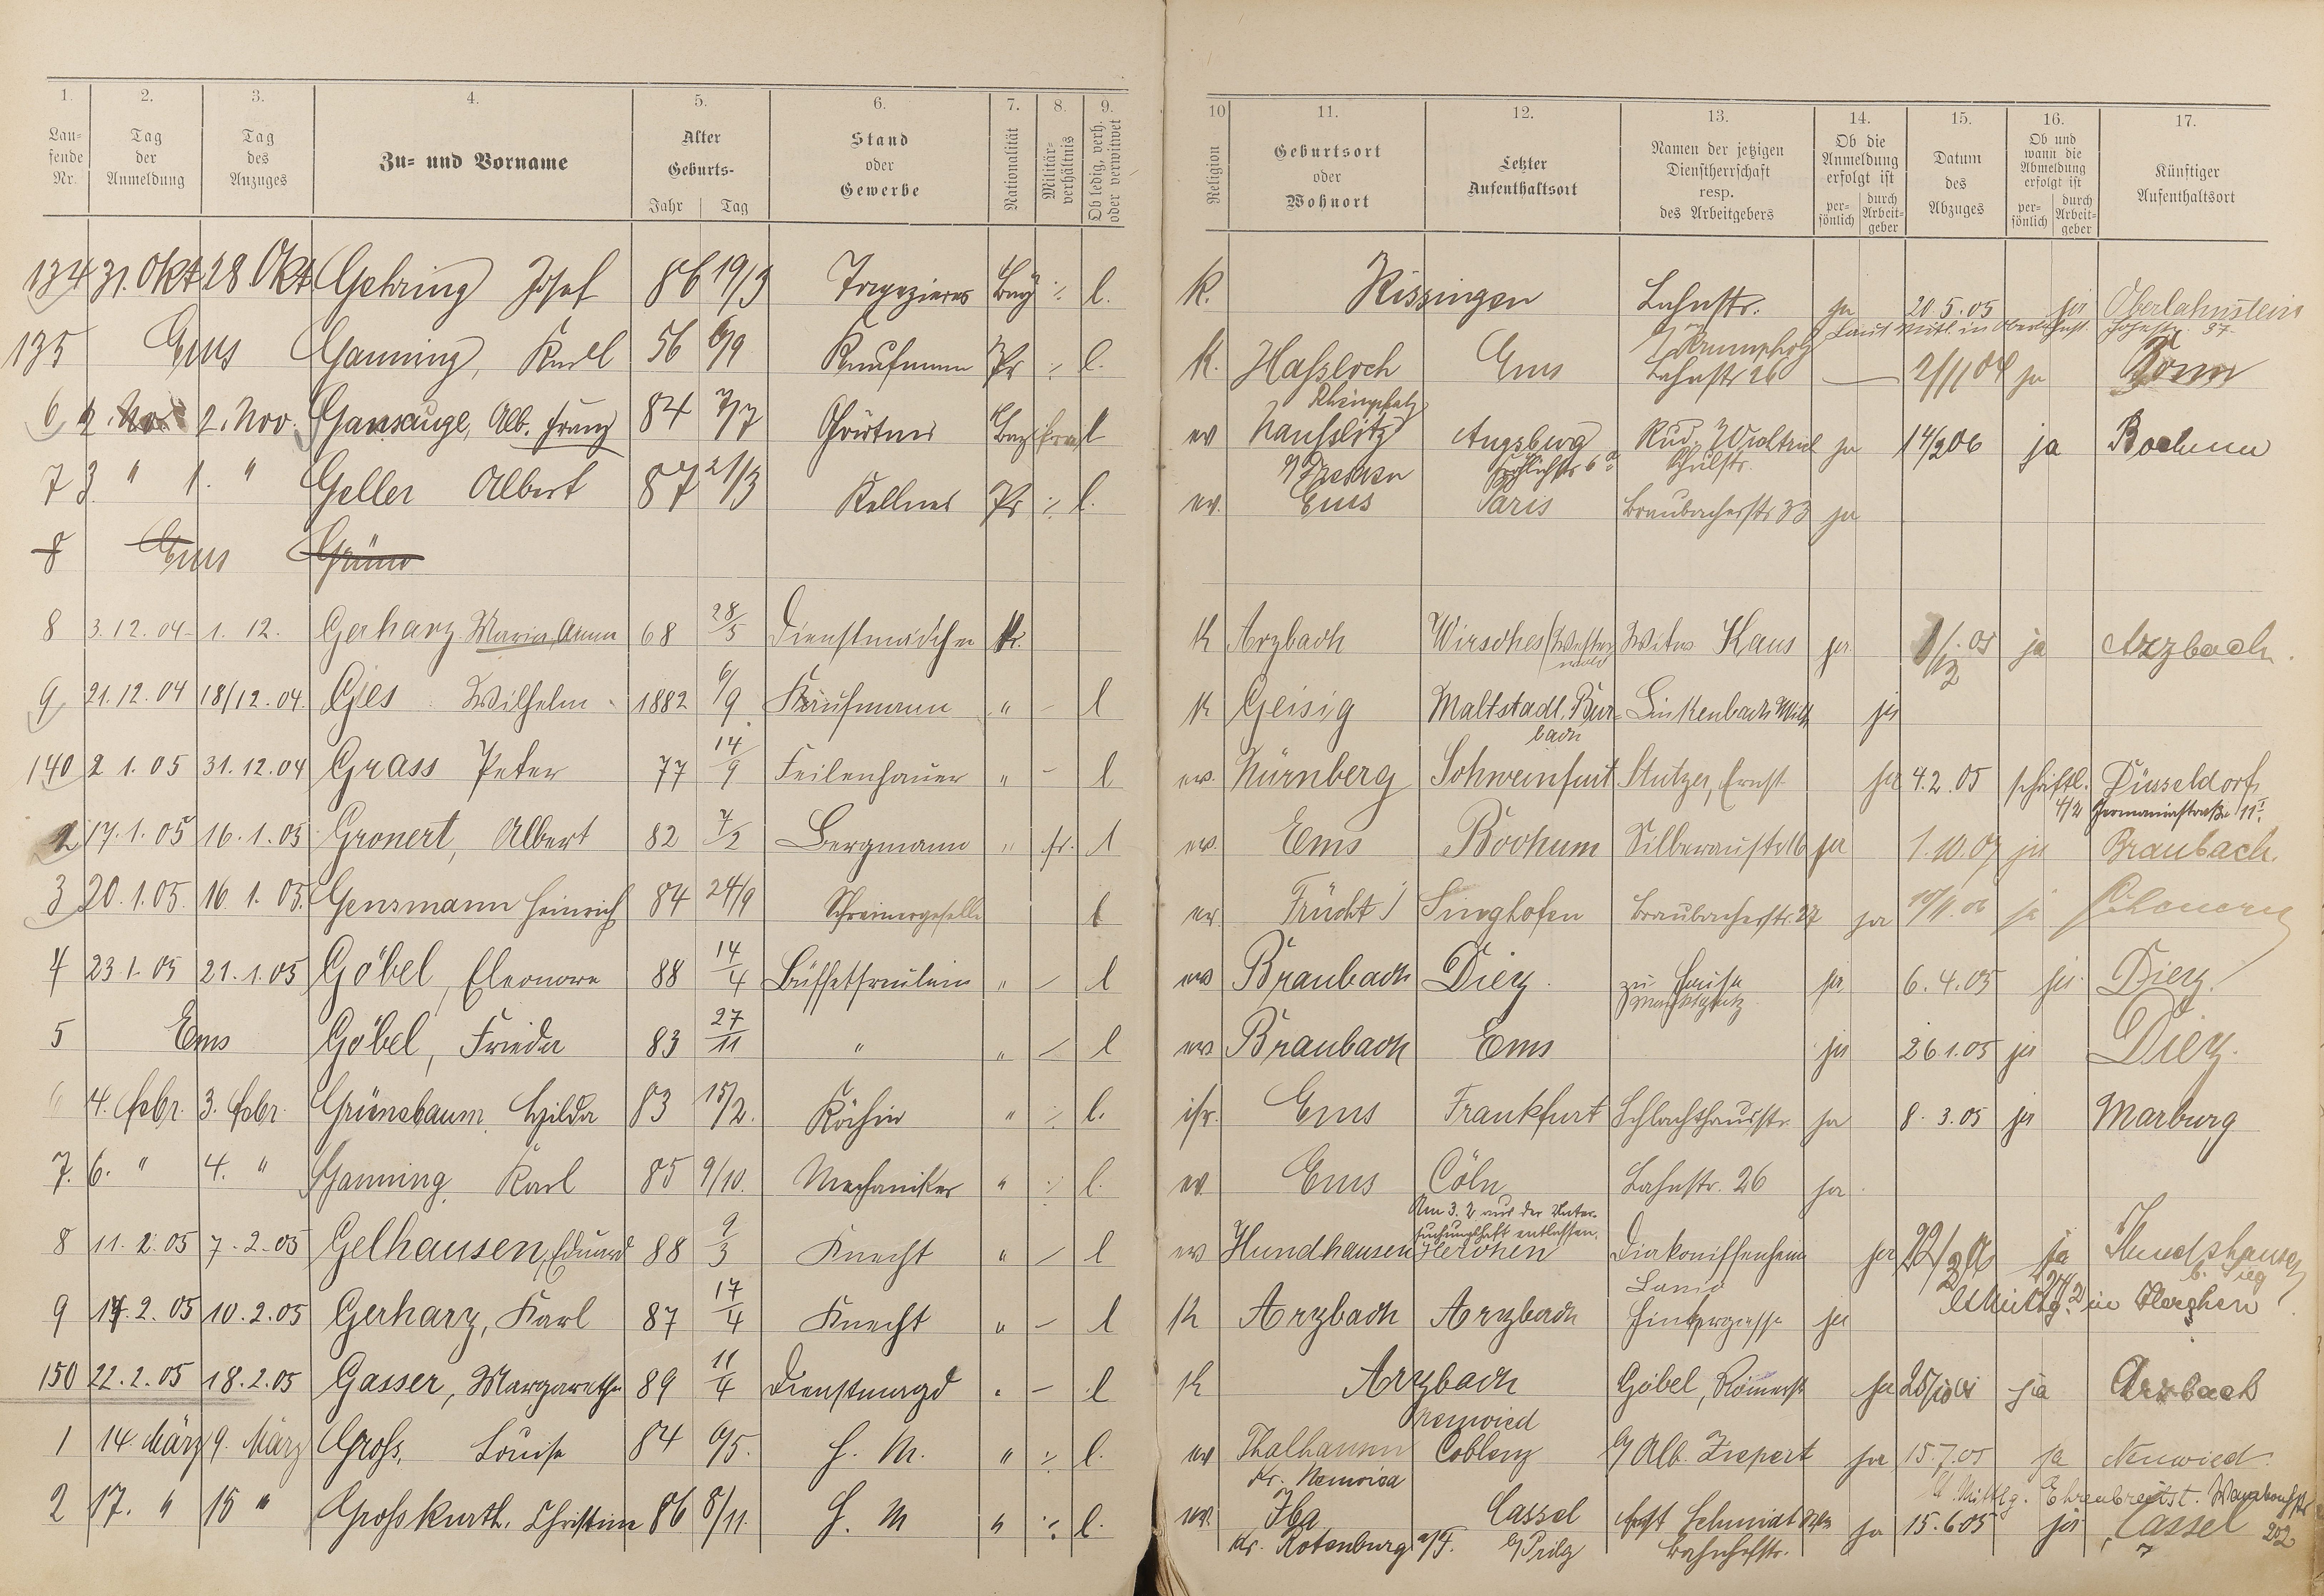 1. 2. 3. 4. 5. 6. 7. 8. 9.
Lau-
fende
Nr.
Tag
der
Anmeldung
Tag
des
Anzuges
Zu- und Vorname
Alter
Geburts-
Jahr Tag
Stand
oder
Gewerbe
Nationalität
Militär-
verhältnis
Ob ledig, verh.
oder verwitwet
10 11. 12. 13. 14. 15. 16. 17.
Religion
Geburtsort
oder
Wohnort
Letzter
Aufenthaltsort
Namen der jetzigen
Dienstherrschaft
resp.
des Arbeitgebers
Ob die
Anmeldung
erfolgt ist
per-
sönlich
durch
Arbeit-
geber
Datum
des
Abzuges
Ob und
wann die
Abmeldung
erfolgt ist
per-
sönlich
durch
Arbeit-
geber
Künftiger
Aufenthaltsort
134 31. Okt 28 Okt Gehring Josef 86 19/3 Tapezierer Bay ./. l. k. Kissingen Lahnstr. ja 20.5.05 ja Oberlahnstein
135 Ems Ganning, Karl 56 6/9 Kaufmann Pr ./. l. k. Haßloch Ems Lahnstr 26 — 2/11 04 ja Bonn
Rheinpfalz
6 2. Nov 2. Nov. Gansauge, Alb. Franz 84 7/7 Gärtner l ev Naußlitz Augsburg Rud. ja 14/2 06 ja Bochum
b/Dresden Schulstr.
7 3 " 1. " Geller Albert 87 21/3 Kellner Pr ./. l. ev. Ems Paris Braubacherstr 33 ja
8 Ems Grün
8 3.12.04 1. 12. Gerharz Maria Anna 68 28/5 Dienstmädchen Pr. k Arzbach Wirsches (Wester-
wald Witwe Kaus ja 05 ja Arzbach.
9 21.12.04 18/12.04. Gies Wilhelm 1882 6/9 Kaufmann " – l k Geisig Linkenbach ja
140 2 1. 05 31.12.04 Grass Peter 77 14/9 Feilenhauer " – l ev. Nürnberg Schweinfurt Stutzer, Ernst ja 4.2.05 schriftl. Düsseldorf
4/2 Germaniastraße 11 I.
2 17.1.05 16.1.05 Gronert, Albert 82 7/2 Bergmann " fr. l ev. Ems Bochum Silberaustr 16 ja 1.10.07 ja Braubach.
3 20.1.05. 16 1. 05. Gensmann Heinrich 84 24/9 Schreinergeselle l ev. Frücht Singhofen Braubacherstr. 27 ja ja
4 23.1.05 21.1.05 Göbel, Eleonore 88 14/4 Büffetfräulein " – l ev Braubach Diez zu Hause ja 6.4.05 ja Diez.
Marktplatz
5 Ems Göbel, Frieda 83 27/11 " " – l ev Braubach Ems ja 26 1.05 ja Diez.
6 4. Febr. 3. Febr. Grünebaum Hilda 83 15/2. Köchin " ./. l. isr. Ems Frankfurt Schlachthausstr. ja 8. 3.05 ja Marburg
7. 6. " 4. " Ganning, Karl 85 9/10. Mechaniker " ./. l. ev. Ems Cöln Lahnstr. 26 ja
Am 3. 2 aus der Unter-
suchungshaft entlassen.
8 11. 2. 05 7. 2. 05 Gelhausen, Eduard 88 9/3 Knecht " – l ev Hundhausen Herchen Diakonissenheim ja 22/2 ja Hundshausen
b. Sieg
in Herchen
9 14. 2. 05 10. 2. 05 Gerharz, Karl 87 17/4 Knecht " – l k Arzbach Arzbach Hintergasse ja
150 22. 2. 05 18. 2. 05 Gasser, Margarethe 89 11/4 Dienstmagd " – l k Arzbach Göbel, Römerstr ja ja Arzbach
Neuwied
1 14. März 9. März Groß, Louise 84 6/5. H. M. " ./. l. ev Coblenz b/ Alb. ja 15.7.05 ja Neuwied.
Kr. Neuwied
2 17. " 15 " Großkurth. Christine 86 8/11. H. M " ./. l. ev. Iba Cassel Schmidt ja 15.6 05 ja Cassel
Kr. Rotenburg a/F. Bahnhofstr. 202